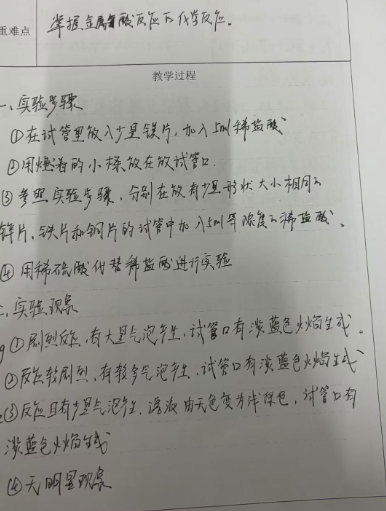 重难点
掌握金属与酸反应的化学反应。
教学过程
一、实验步骤
①在试管里放入少量镁片,加入5ml稀盐酸
②用燃着的小木条放在放试管口.
③参照实验步骤,分别在放有少量形状大小相同的
锌片、铁片和铜片的试管中加入5ml等浓度的稀盐酸、
④用稀硫酸代替稀盐酸进行实验
二、实验现象
g ①剧烈反应,有大量气泡产生,试管口有淡蓝色火焰生成.
②反应较剧烈,有较多气泡产生,试管口有淡蓝色火焰生成
③反应且有少量气泡产生,溶液由无色变为浅绿色,试管口有
淡蓝色火焰生成
④无明显现象